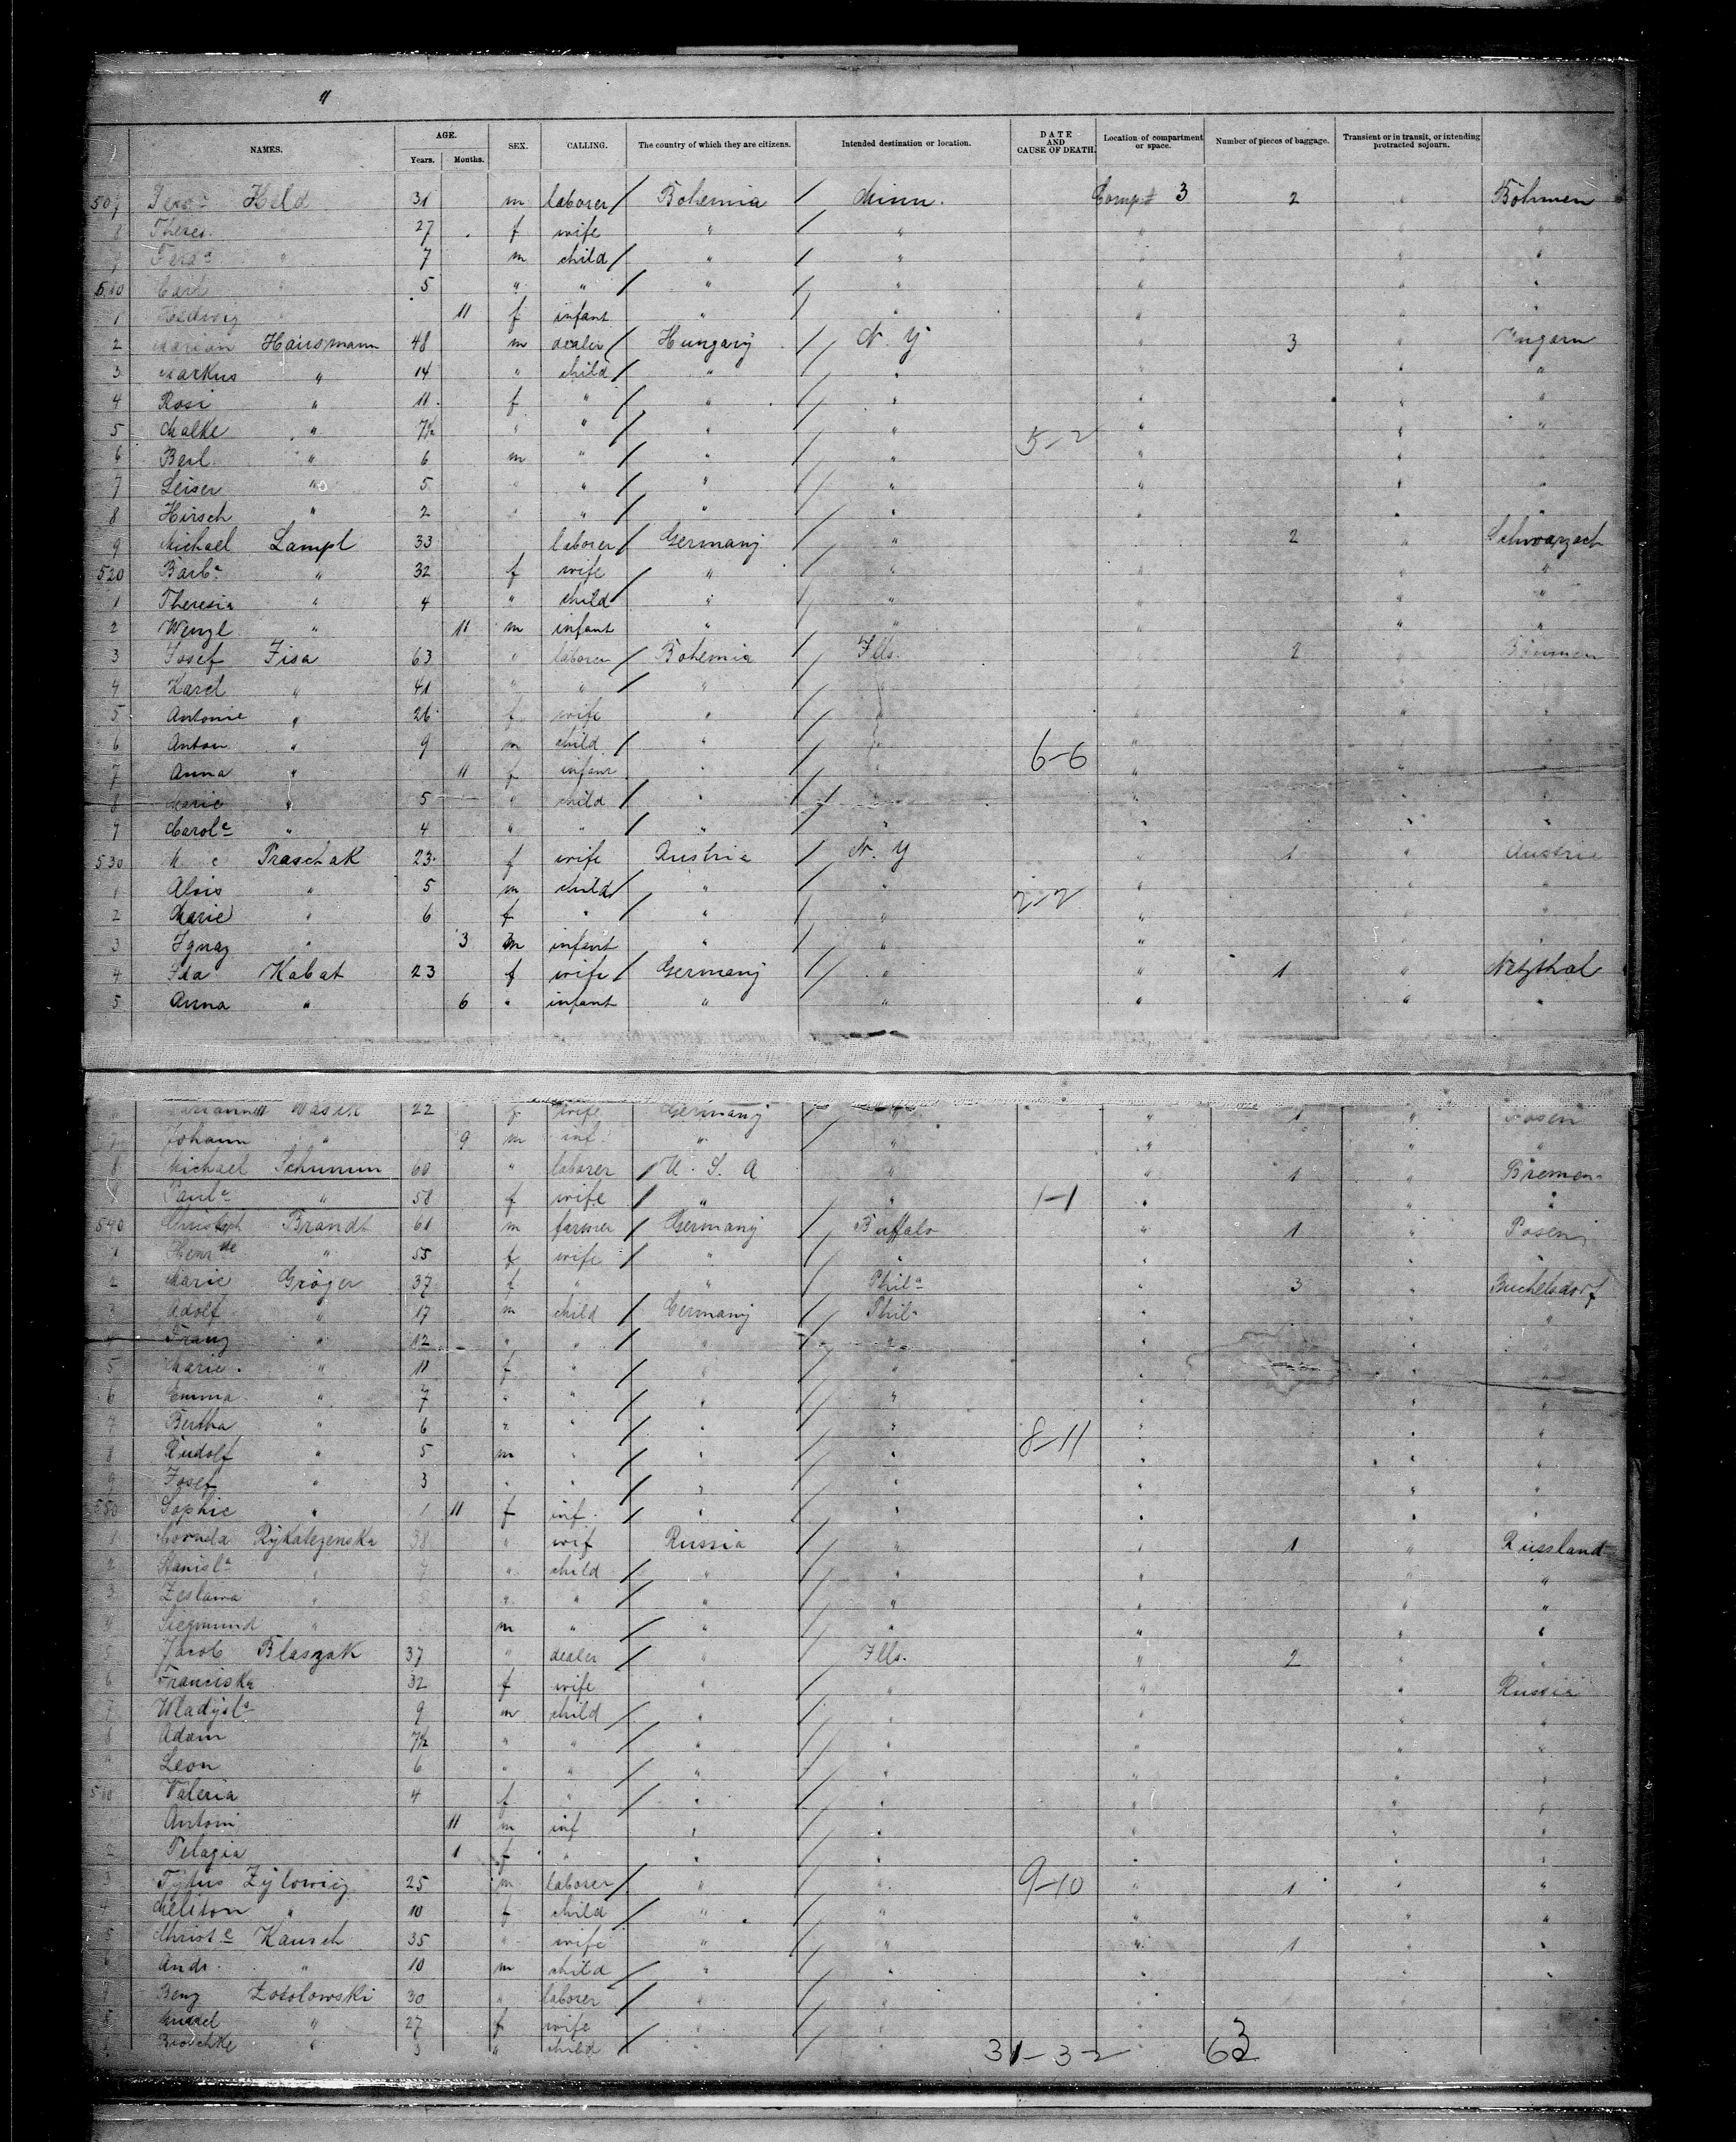 "
NAMES. AGE. Years. Months. SEX. CALLING. The country of which they are citizens. Intended destination or location. DATE AND CAUSE OF DEATH. Location of compartment or space. Number of pieces of baggage. Transient or in transit, or intending protracted sojourn.
507 Held 31 m laborer / Bohemia / Minn. Comp't 3 2 " Böhmen
8 Theres. " 27 f wife " / " " " "
9 Ferd " 7 m child / " / " " " "
510 Carl " 5 " " / " / " " " "
1 Hedwig " 11 f infant " / " " " "
2 Hausmann 48 m dealer / Hungary / N. Y " 3 " Ungarn
3 Markus " 14 " child / " / " " " "
4 Rosi " 11 f " / " / " " " "
5 Malke " 7½ " " / " / " 5-2 " " "
6 Berl " 6 m " / " / " " " "
7 Leiser " 5 " " / " / " " " "
8 Hirsch " 2 " " / " / " " " "
9 Michael Lampl 33 laborer / Germany / " 2 " Schwarzach
520 Barb.a " 32 f wife / " / " " "
1 Theresia " 4 " child / " / " " " "
2 Wenzl " 11 m infant " / " " " "
3 Josef Fisa 63 " laborer / Bohemia / Ills. " 2 " Böhmen
4 Karel " 41 " " / " / " " "
5 Antonie " 26 f wife " / " " " "
6 Anton " 9 m child / " / " 6-6 " "
7 Anna " 11 f infant " / " " " "
8 Marie " 5 " child / " / " " "
9 Carol.e " 4 " " / " / " " " "
530 Praschak 23 f wife Austria / N. Y " 1 " Austria
1 Alois " 5 m child / " / " 2-2 " " "
2 Marie " 6 f " / " / " " " "
3 Ignaz " 3 m infant " / " " "
4 Ida Kabat 23 f wife / Germany / " " 1 " Netzthal
5 Anna " 6 " infant " " " " "
Wasik 22 f wife Germany / " " 1 " Posen
Johann " 9 m inf. " / " " " "
8 Michael Schumm 60 " laborer / U. S. A " " 1 " Bremen
Paul.e " 58 f wife / " " 1-1 " " "
540 Christoph Brandt 61 m farmer / Germany / Buffalo " 1 " Posen
1 Henr.tte " 55 f wife / " / " " " "
2 Marie Gröger 37 f " " / Phil.a " 3 " Buchelsdorf
3 Adolf " 17 m child / Germany / Phil.a " " "
4 Franz " 12 " " / " / " " " "
5 Marie " 11 f " / " / " " " "
6 Emma " 7 " " / " / " " " "
7 Bertha " 6 " " / " / " 8-11 " " "
8 Rudolf " 5 m " / " / " " " "
9 Josef " 3 " " / " / " " " "
550 Sophie " 1 11 f inf. / " / " " " "
1 38 " wif Russia / " " 1 " Russland
2 Stanisl.a " 7 " child / " / " " " "
3 Zeslawa " " " / " / " " " "
4 Siegmund " m " / " / " " " "
5 Jacob Blaszak 37 " dealer / " / Ills. " 2 " "
6 Franciska 32 f wife " / " " " Russia
7 Wladysl.s 9 m child / " / " " " "
8 Adam 7½ " " / " / " " " "
9 Leon 6 " " / " / " " " "
560 Valeria 4 f " / " / " " " "
Antoni 11 m inf " / " " " "
2 Pelagia 1 f " " / " " " "
3 Tytus Zylowicz 25 m laborer / " / " 9-10 " 1 " "
4 Meliton " 10 f child / " / " " " "
5 Christ.e Kausch 35 " wife " / " " 1 " "
6 Andr. " 10 m child / " / " "
7 30 " laborer / " / "
8 " 27 f wife / " / "
" 3 " child / " / " 31-32 63